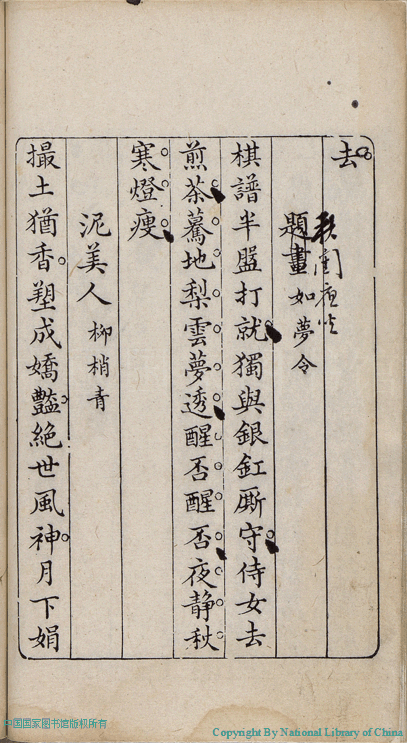 去
題畫 如夢令
秋閨夜
棋譜半盤打就獨與銀釭厮守侍女去
煎茶驀地梨雲夢透醒否醒否夜静秋
寒燈瘦
泥美人 柳梢青
撮土猶香塑成嬌豔絕世風神月下娟
中国国家图书馆版权所有
Copyright By National Library of China